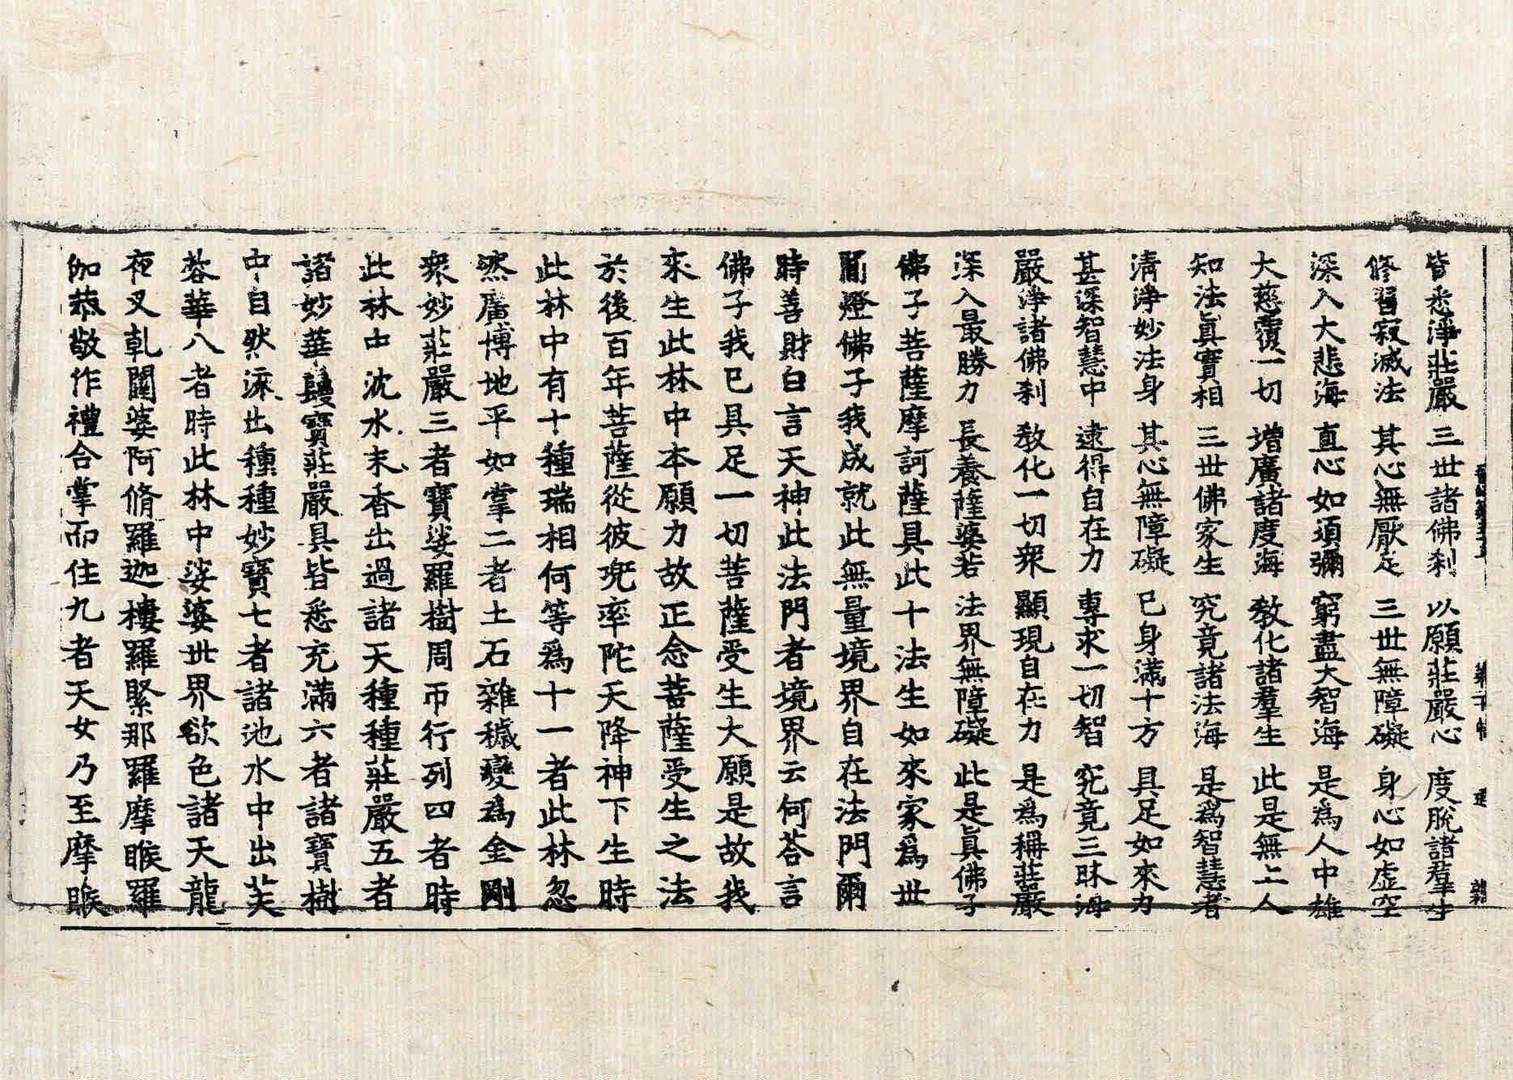 皆悉淨莊嚴　三世諸佛刹　以願莊嚴心　度脫諸羣生
修習寂滅法　其心無厭足　三世無障礙　身心如虛空
深入大悲海　直心如須彌　窮盡大智海　是為人中雄
大慈覆一切　增廣諸度海　敎化諸羣生　此是無上人
知法眞實相　三世佛家生　究竟諸法海　是爲智慧者
清淨妙法身　其心無障礙　已身滿十方　具足如來力
甚深智慧中　逮得自在力　專求一切智　究竟三昧海
嚴淨諸佛刹　敎化一切衆　顯現自在力　是爲稱莊嚴
深入最勝力　長養薩婆若　法界無障礙　此是眞佛子
佛子菩薩摩訶薩具此十法生如來家爲世
間燈佛子我成就此無量境界自在法門爾
時善財白言天神此法門者境界云何荅言
佛子我已具足一切菩薩受生大願是故我
來生此林中本願力故正念菩薩受生之法
於後百年菩薩從彼兜率陀天降神下生時
此林中有十種瑞相何等爲十一者此林忽
然廣博地平如掌二者土石雜穢變為金剛
衆妙莊嚴三者寶娑羅樹周帀行列四者時
此林中沈水末香出過諸天種種莊嚴五者
諸妙華鬘寶莊嚴具皆悉充滿六者諸寶樹
中自然流出種種妙寶七者諸池水中出芙
蓉華八者時此林中娑婆世界欲色諸天龍
夜叉乹闥婆阿脩羅迦樓羅緊那羅摩睺羅
伽恭敬作禮合掌而住九者天女乃至摩睺